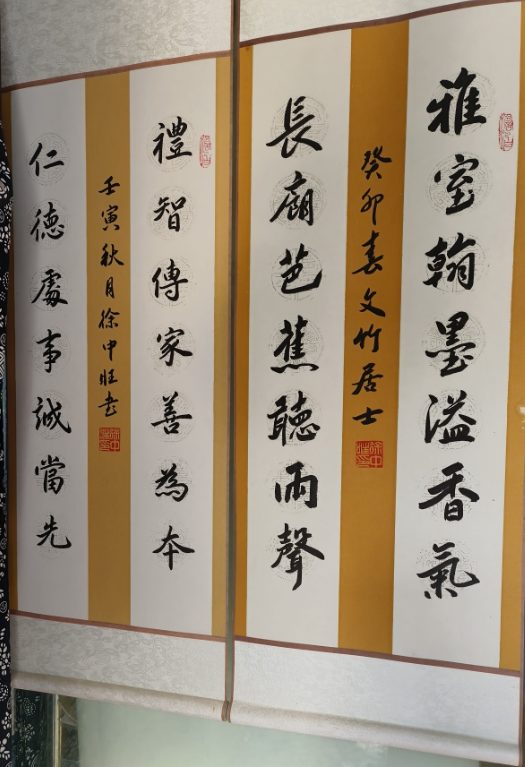 雅室翰墨溢香氣
癸卯春文竹居士
長廊芭蕉聽雨聲
禮智傳家善為本
壬寅秋月徐中旺书
仁德處事誠當先